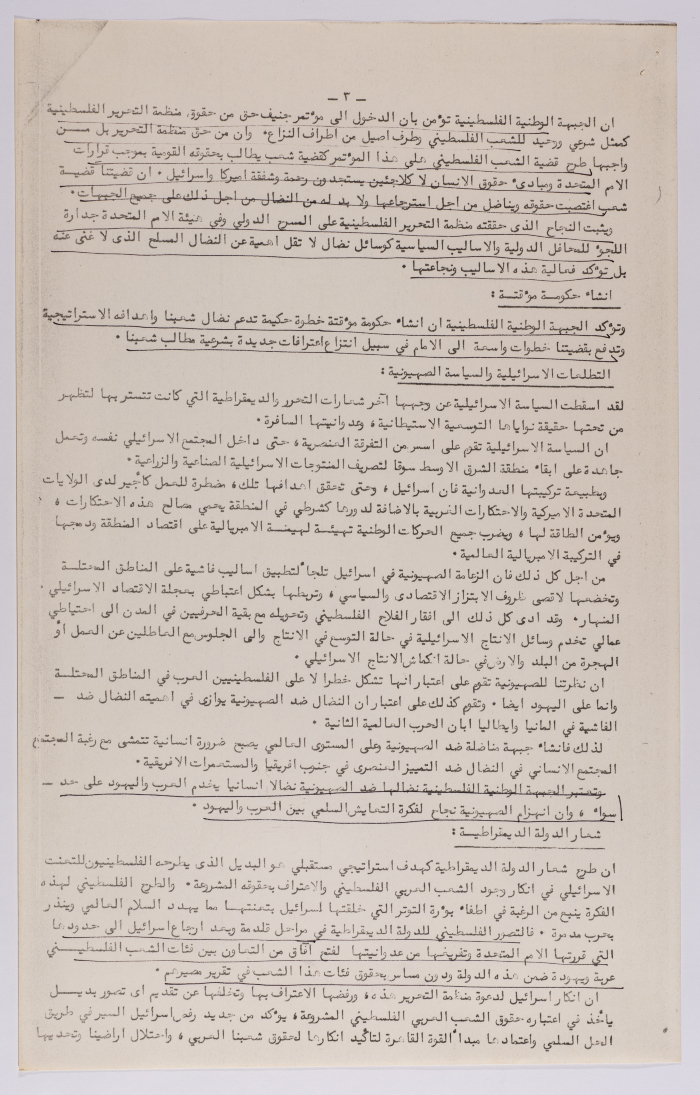 — ٣ —
ان الجبهة الوطنية الفلسطينية تؤمن بان الدخول الى مؤتمر جنيف حق من حقوق منظمة التحرير الفلسطينية
كممثل شرعي ووحيد للشعب الفلسطيني وطرف اصيل من اطراف النزاع ٠ وان من حق منظمة التحرير بل مسن
واجبها طرح قضية الشعب الفلسطيني على هذا المؤتمر كقضية شعب يطالب بحقوقه القومية بموجب قرارات
الامم المتحدة ومبادئ حقوق الانسان لا كلاجئين يستجدون رحمة وشفقة اميركا واسرائيل ٠ ان قضيتنا قضية
شعب اغتصبت حقوقه ويناضل من اجل استرجاعها ولا بد له من النضال من اجل ذلك على جميع الجبهات ٠
ويثبت النجاح الذى حققته منظمة التحرير الفلسطينية على المسرح الدولي وفي هيئة الامم المتحدة جدارة
اللجوء للمحافل الدولية والاساليب السياسية كوسائل نضال لا تقل اهمية عن النضال المسلح الذى لا غنى عنه
بل تؤكد فعالية هذه الاساليب ونجاعتها ٠
انشاء حكومة مؤقتة :
وتؤكد الجبهة الوطنية الفلسطينية ان انشاء حكومة مؤقتة خطوة حكيمة تدعم نضال شعبنا واهدافه الاستراتيجية
وتدفع بقضيتنا خطوات واسعة الى الامام في سبيل انتزاع اعترافات جديدة بشرعية مطالب شعبنا ٠
التطلعات الاسرائيلية والسياسة الصهيونية :
لقد اسقطت السياسة الاسرائيلية عن وجهها آخر شعارات التحرر والديمقراطية التي كانت تتستر بها لتظهر
من تحتها حقيقة نواياها التوسعية الاستيطانية ، وعدوانيتها السافرة ٠
ان السياسة الاسرائيلية تقوم على اسس من التفرقة العنصرية ، حتى داخل المجتمع الاسرائيلي نفسه وتعمل
جاهدة على ابقاء منطقة الشرق الاوسط سوقا لتصريف المنتوجات الاسرائيلية الصناعية والزراعية ٠
وبطبيعة تركيبتها العدوانية فان اسرائيل ، وحتى تحقق اهدافها تلك ، مضطرة للعمل كأجير لدى الولايات
المتحدة الاميركية والاحتكارات الغربية بالاضافة لدورها كشرطي في المنطقة يحمي مصالح هذه الاحتكارات ،
ويؤمن الطاقة لها ، ويضرب جميع الحركات الوطنية تهيئة لهيمنة الامبريالية على اقتصاد المنطقة ودمجها
في التركيبة الامبريالية العالمية ٠
من اجل كل ذلك فان الزعامة الصهيونية في اسرائيل تلجأ لتطبيق اساليب فاشية على المناطق المحتلسة
وتخضعها لاقصى ظروف الابتزاز الاقتصادى والسياسي ، وتربطها بشكل اعتباطي بعجلة الاقتصاد الاسرائيلي
المنهار ٠ وقد ادى كل ذلك الى افقار الفلاح الفلسطيني وتحويله مع بقية الحرفيين في المدن الى احتياطي
عمالي تخدم وسائل الانتاج الاسرائيلية في حالة التوسع في الانتاج والى الجلوس مع العاطلين عن العمل أو
الهجرة من البلد والارض في حالة انكماش الانتاج الاسرائيلي ٠
ان نظرتنا للصهيونية تقوم على اعتبار انها تشكل خطرا لا على الفلسطينيين العرب في المناطق المحتلسة
وانما على اليهود ايضا ٠ وتقوم كذلك على اعتبار ان النضال ضد الصهيونية يوازى في اهميته النضال ضد —
الفاشية في المانيا وايطاليا ابان الحرب العالمية الثانية ٠
لذلك فانشاء جبهة مناضلة ضد الصهيونية وعلى المستوى العالمي يصبح ضرورة انسانية تتمشى مع رغبة المجتمع
المجتمع الانساني في النضال ضد التمييز العنصرى في جنوب افريقيا والمستعمرات الافريقية ٠
وتعتبر الجبهة الوطنية الفلسطينية نضالها ضد الصهيونية نضالا انسانيا يخدم العرب واليهود على حد —
سواء ، وان انهزام الصهيونية نجاح لفكرة التعايش السلمي بين العرب واليهود ٠
شعار الدولة الديمقراطية :
ان طرح شعار الدولة الديمقراطية كهدف استراتيجي مستقبلي هو البديل الذى يطرحه الفلسطينيون للتعنت
الاسرائيلي في انكار وجود الشعب العربي الفلسطيني والاعتراف بحقوقه المشروعة ٠ والطرح الفلسطيني لهذه
الفكرة ينبع من الرغبة في اطفاء بؤرة التوتر التي خلقتها اسرائيل بتعنتها مما يهدد السلام العالمي وينذر
بحرب مدمرة ٠ فالتصور الفلسطيني للدولة الديمقراطية في مراحل قادمة وبعد ارجاع اسرائيل الى حدودها
التي قررتها الامم المتحدة وتفريغها من عدوانيتها لفتح آفاق من التعاون بين فئات الشعب الفلسطينسي
عربة ويهودة ضمن هذه الدولة ودون مساس بحقوق فئات هذا الشعب في تقرير مصيرهم ٠
ان انكار اسرائيل لدعوة منظمة التحرير هذه ، ورفضها الاعتراف بها وتخلفها عن تقديم اى تصور بديسل
يأخذ في اعتباره حقوق الشعب العربي الفلسطيني المشروعة ، يؤكد من جديد رفض اسرائيل السير في طريق
الحل السلمي واعتمادها مبدأ القوة القاهرة لتأكيد انكارها لحقوق شعبنا العربي ، واحتلال اراضينا وتحديها